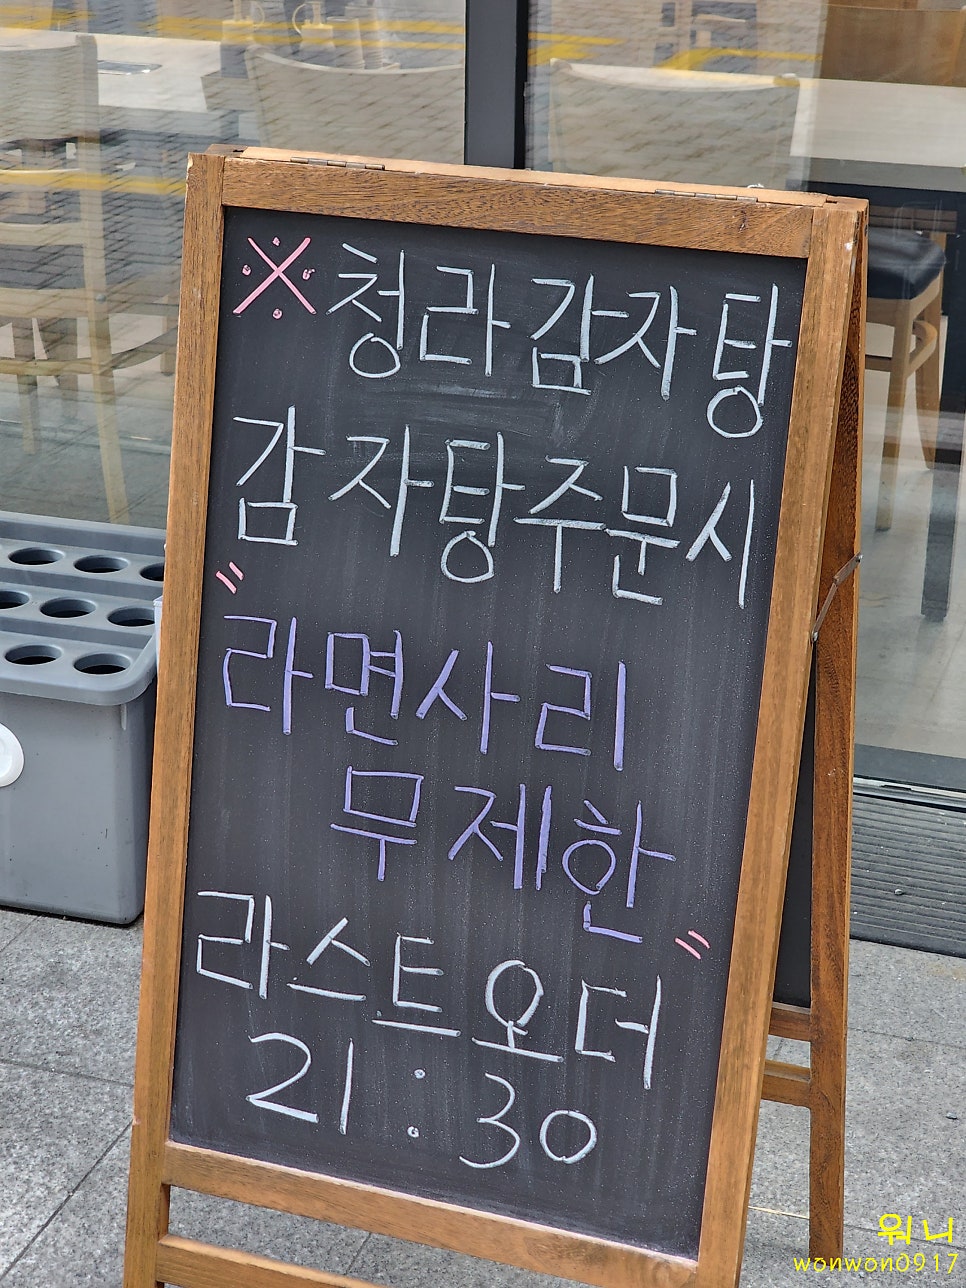 ※청라감자탕
감자탕주문시
"라면사리
무제한"
라스트오더
21:30
워니
wonwon0917